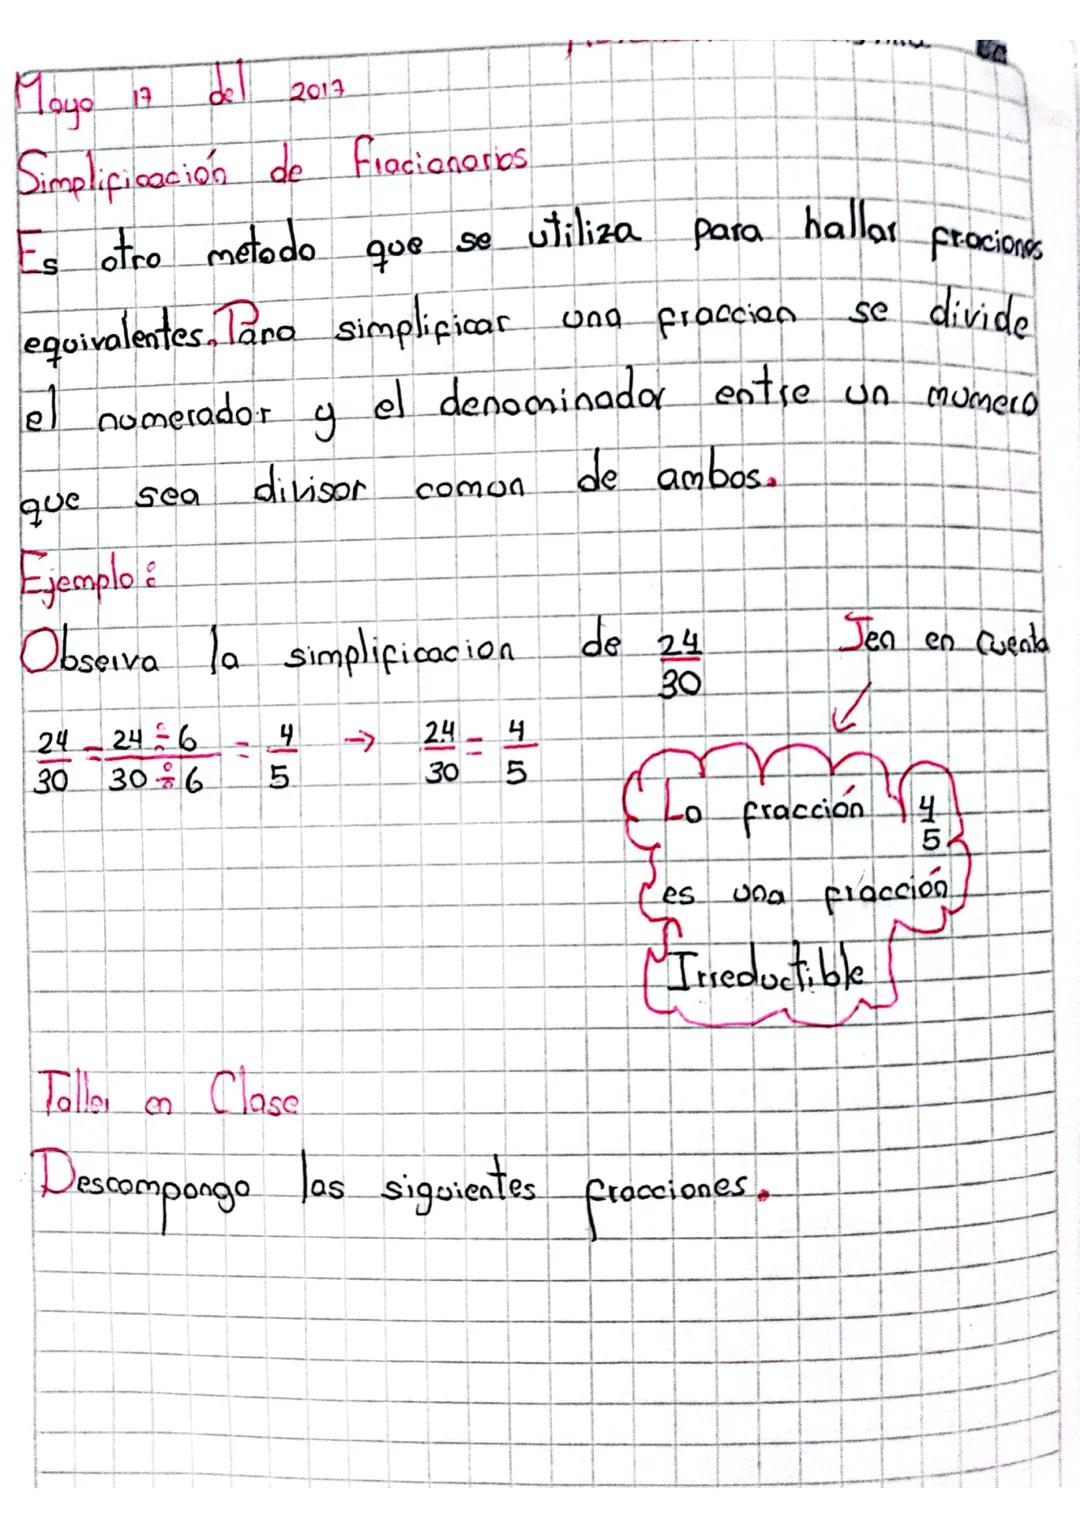 Mayo 17 del 2017
Simplificación de Fracionarios
Es otro metodo que se utiliza para hallar fraciones
equivalentes. Para simplificar una fraccion se divide
el numerador y el denominador entre un mumero
que sea divisor comun de ambos.
Ejemplo:
Observa la simplificacion de 24/30 Ten en cuenta
24/30 = 24÷6/30÷6 = 4/5 → 24/30 = 4/5
La fracción 4/5
es una fracción
Irreductible
Taller en Clase
Descompongo las siguientes fracciones.